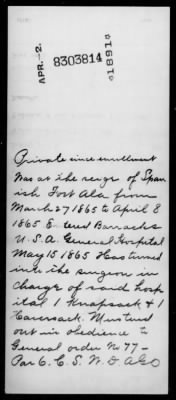 APR.-2.
8303814
1891
Private since enrollment
Was at the seige of Span
ish Fort Ala from
March 27 1865 to April 8
1865 Entered Barracks
U.S.A. General Hospital
May 15 1865 Has turned
into the surgeon in
charge of said hosp
ital 1 Knapsack & 1
Haversack. Mustered
out in obedience to
General order No 77-
Par 6. C. S. W. D. AGO